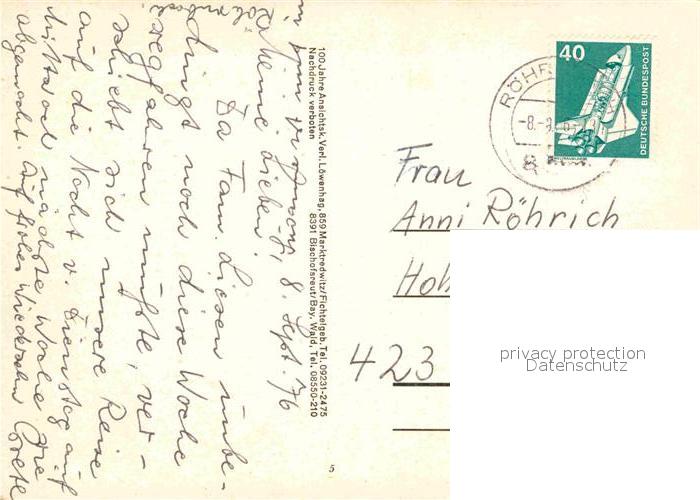 8. Sept. 76
meine Lieben!
Da Fam. Liesen unbe-
dingt noch diese Woche
wegfahren mußte, ver-
schiebt sich unsere Reise
auf die Nacht v. Dienstag auf
Mittwoch nächste Woche.
abgemacht. Auf frohes Wiedersehn Grete
100 Jahre Ansichtsk. Verl. Löwenhag, 859 Marktredwitz/Fichtelgeb. Tel. 09231-2475
Nachdruck verboten 8391 Bischofsreut/Bay. Wald, Tel. 08550-210
5
40
DEUTSCHE BUNDESPOST
RÖHR
-8.-9.
8
Frau
Anni Röhrich
Hoh
423
privacy protection
Datenschutz